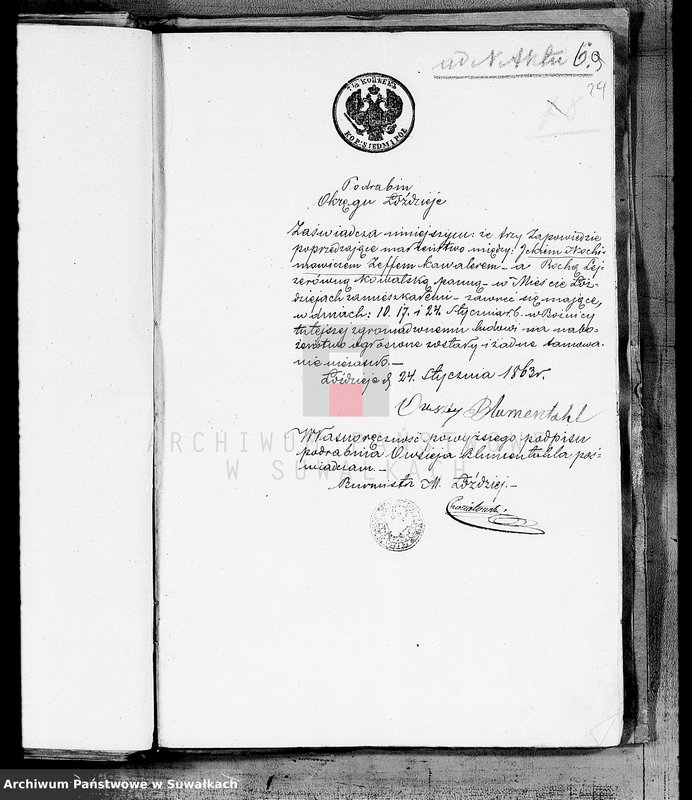 ad N Aktu 69
24
7½ KOPIEEK
KOP. SIEDM I PÓŁ
Podrabin
Okręgu Łoździeje
Zaświadcza niniejszym: że trzy Zapowiedzie
poprzedzające małżeństwo między: Ickiem Nochi-
mowiczem Zeffem kawalerem – a Rochą Lej-
zerówną Kowalską panną – w Mieście Łoź-
dziejach zamieszkałemi – zawrzeć się mające,
w dniach: 10. 17. i 24. Stycznia r. b. w Bożnicy
tutejszej zgromadzonemu ludowi na nabo-
żeństwo ogłoszone zostały i żadne tamowa-
nie niezaszło. –
Łoździeje d. 24. Stycznia 1863 r.
Owszey Blumentahl
Własnoręczność powyższego podpisu
podrabina Owsieja Blumentahla poś-
wiadczam. –
Burmistrz M. Łoździej. –
ARCHIWUM PAŃSTWOWE
W SUWAŁKACH
Archiwum Państwowe w Suwałkach